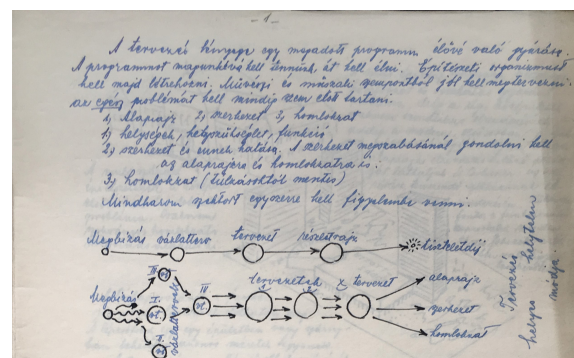 - 1 -
A tervezés lényege egy megadott programm élővé való gyúrása.
A programmot magunkévá kell tennünk, át kell élni. Építészeti organizmust
kell majd létrehozni. Művészi és műszaki szempontból jól kell megtervezni
az egész problémát kell mindig szem előtt tartani.
1, Alaprajz 2, szerkezet 3, homlokzat
1, helységek, helyszükséglet, funkció
2, szerkezet és ennek hatása. A szerkezet megszabásánál gondolni kell
az alaprajzra és homlokzatra is.
3, homlokzat (túlzásoktól mentes)
Mindhárom faktort egyszerre kell figyelembe venni.
Megbízás vázlatterv tervezet részletrajz
Megbízás I. II. III tervezetek tervezet alaprajz
szerkezet
homlokzat
vázlattervek
Tervezés helytelen
helyes módja.